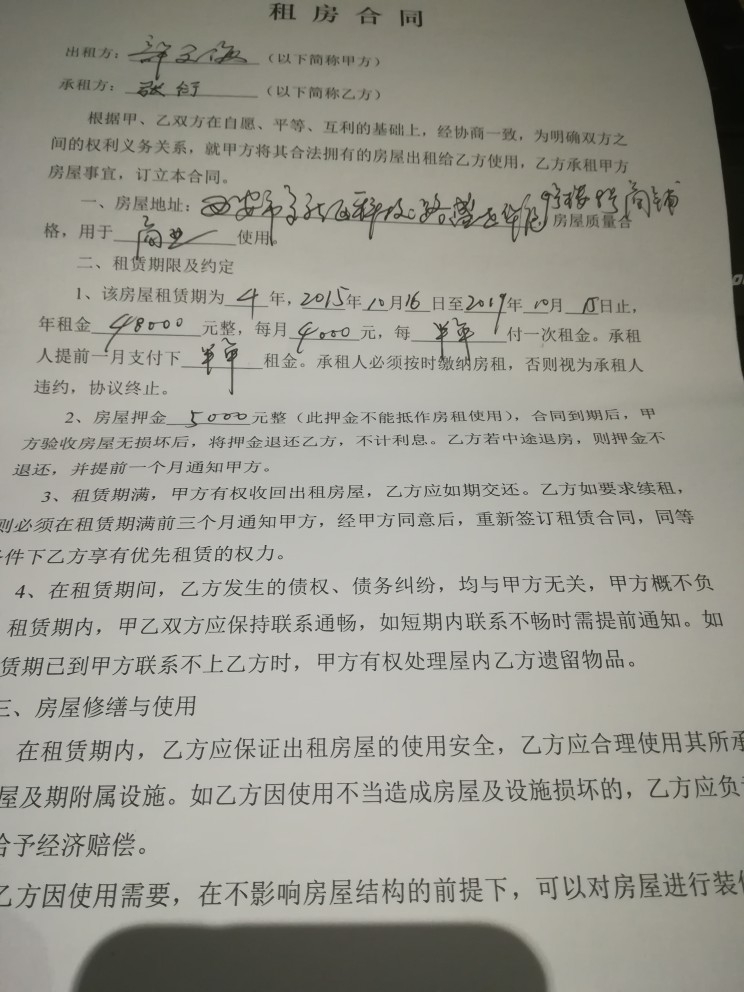 租房合同
出租方：（以下简称甲方）
承租方：（以下简称乙方）
根据甲、乙双方在自愿、平等、互利的基础上，经协商一致，为明确双方之
间的权利义务关系，就甲方将其合法拥有的房屋出租给乙方使用，乙方承租甲方
房屋事宜，订立本合同。
一、房屋地址：西安市 商铺 房屋质量合
格，用于 商业 使用。
二、租赁期限及约定
1、该房屋租赁期为 4 年，2015年10月16日至2019年10月15日止，
年租金 48000 元整，每月 4000 元，每 半年 付一次租金。承租
人提前一月支付下 半年 租金。承租人必须按时缴纳房租，否则视为承租人
违约，协议终止。
2、房屋押金 5000 元整（此押金不能抵作房租使用），合同到期后，甲
方验收房屋无损坏后，将押金退还乙方，不计利息。乙方若中途退房，则押金不
退还，并提前一个月通知甲方。
3、租赁期满，甲方有权收回出租房屋，乙方应如期交还。乙方如要求续租，
则必须在租赁期满前三个月通知甲方，经甲方同意后，重新签订租赁合同，同等
件下乙方享有优先租赁的权力。
4、在租赁期间，乙方发生的债权、债务纠纷，均与甲方无关，甲方概不负
租赁期内，甲乙双方应保持联系通畅，如短期内联系不畅时需提前通知。如
赁期已到甲方联系不上乙方时，甲方有权处理屋内乙方遗留物品。
三、房屋修缮与使用
在租赁期内，乙方应保证出租房屋的使用安全，乙方应合理使用其所承
屋及期附属设施。如乙方因使用不当造成房屋及设施损坏的，乙方应负
给予经济赔偿。
乙方因使用需要，在不影响房屋结构的前提下，可以对房屋进行装